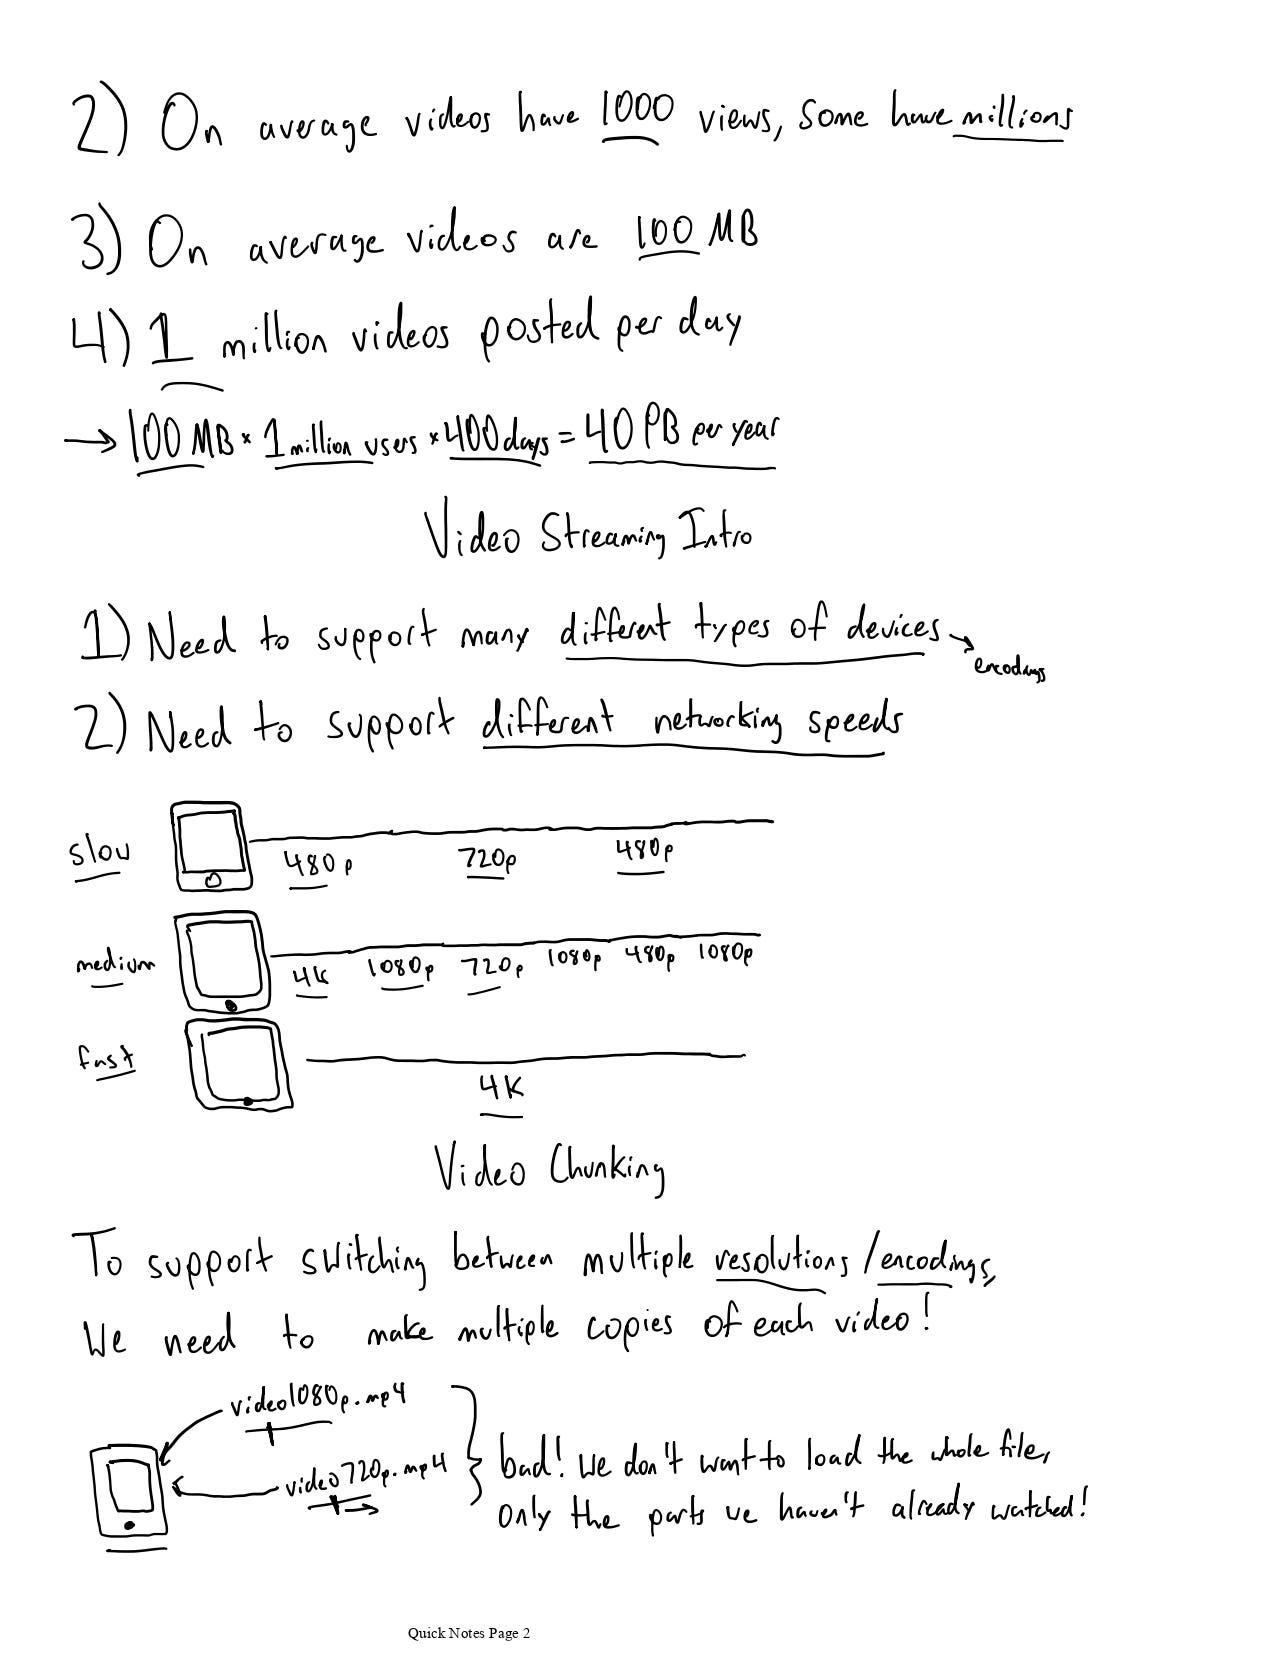 2) On average videos have 1000 views, some have millions
3) On average videos are 100 MB
4) 1 million videos posted per day
→ 100 MB * 1 million users * 400 days = 40 PB per year
Video Streaming Intro
1) Need to support many different types of devices →
encodings
2) Need to support different networking speeds
slow
480p 720p 480p
medium
4K 1080p 720p 1080p 480p 1080p
fast
4K
Video Chunking
To support switching between multiple resolutions/encodings,
We need to make multiple copies of each video!
video1080p.mp4
video720p.mp4
bad! We don't want to load the whole file,
only the parts we haven't already watched!
Quick Notes Page 2